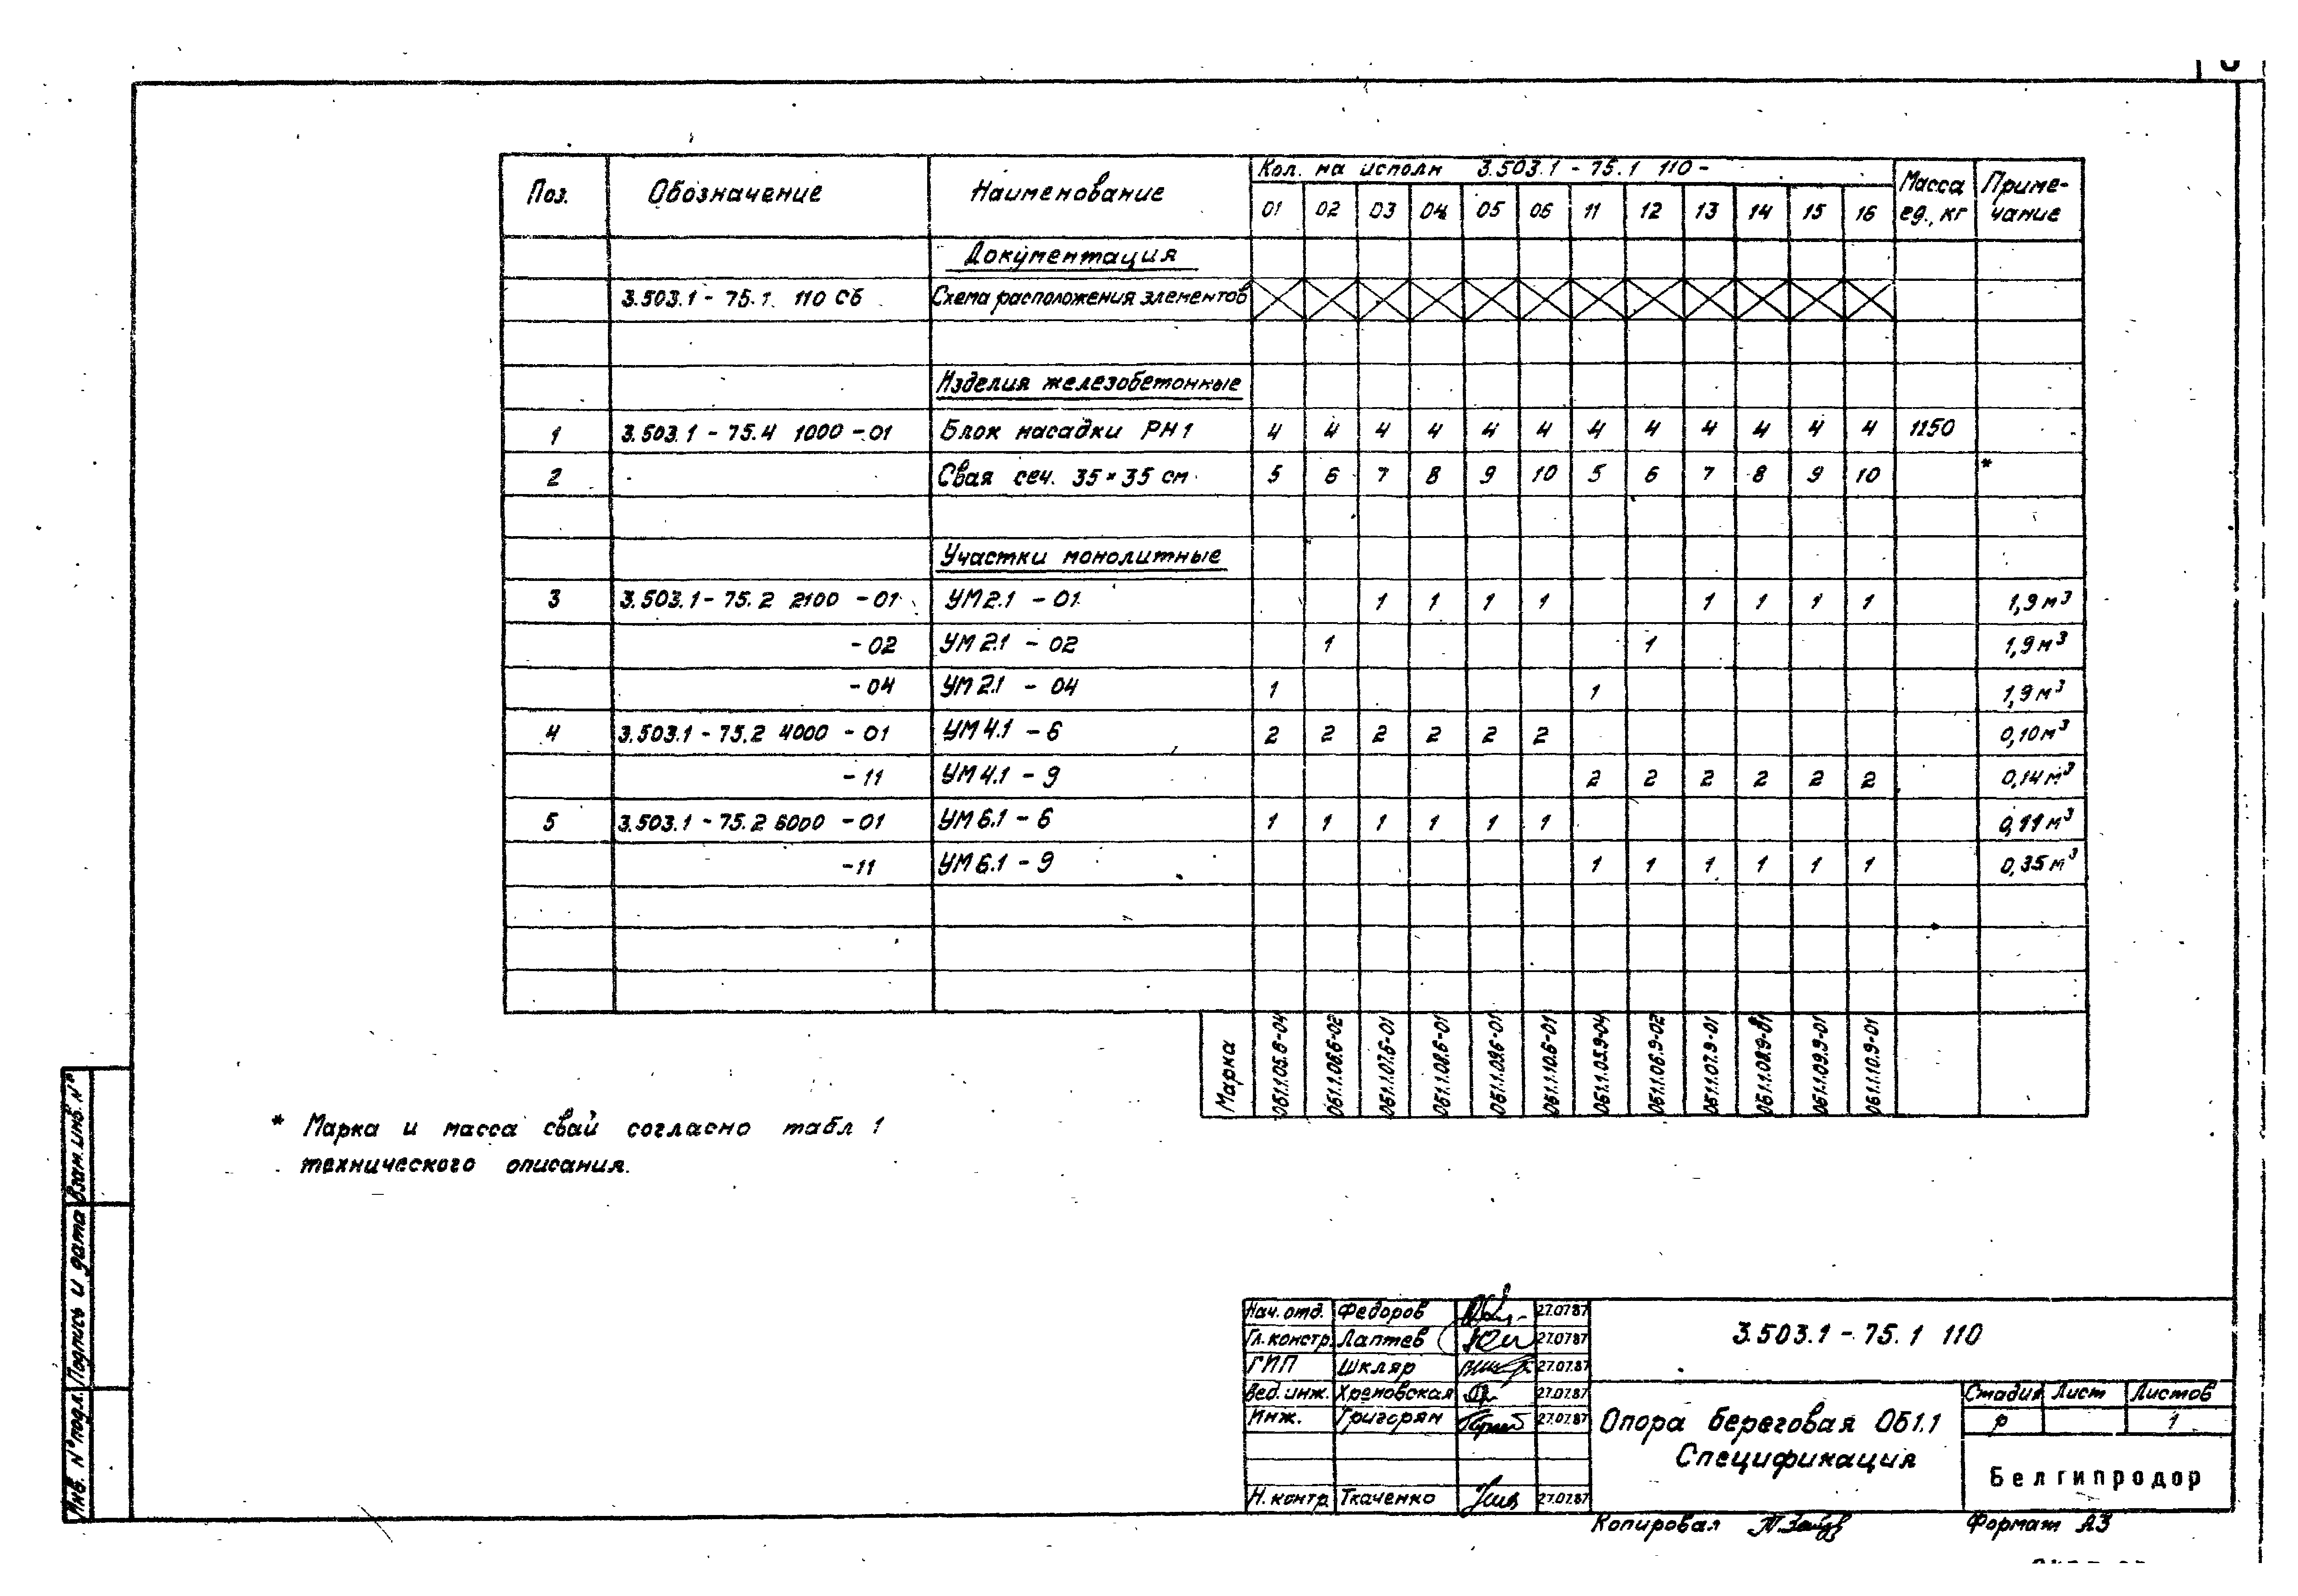 Поз. Обозначение Наименование Кол. на исполн 3.503.1 - 75.1 110 - Масса ед., кг Приме-чание
01 02 03 04 05 06 11 12 13 14 15 16
Документация
3.503.1 - 75.1 110 СБ Схема расположения элементов
Изделия железобетонные
1 3.503.1 - 75.4 1000 - 01 Блок насадки РН1 4 4 4 4 4 4 4 4 4 4 4 4 1150
2 Свая сеч. 35×35 см 5 6 7 8 9 10 5 6 7 8 9 10 *
Участки монолитные
3 3.503.1 - 75.2 2100 - 01 УМ2.1 - 01 1 1 1 1 1 1 1 1 1,9 м³
- 02 УМ2.1 - 02 1 1 1,9 м³
- 04 УМ2.1 - 04 1 1 1,9 м³
4 3.503.1 - 75.2 4000 - 01 УМ4.1 - 6 2 2 2 2 2 2 0,10 м³
- 11 УМ4.1 - 9 2 2 2 2 2 2 0,14 м³
5 3.503.1 - 75.2 6000 - 01 УМ6.1 - 6 1 1 1 1 1 1 0,11 м³
- 11 УМ6.1 - 9 1 1 1 1 1 1 0,35 м³
Марка
ОБ1.1.05.6-04
ОБ1.1.06.6-02
ОБ1.1.07.6-01
ОБ1.1.08.6-01
ОБ1.1.09.6-01
ОБ1.1.10.6-01
ОБ1.1.05.9-04
ОБ1.1.06.9-02
ОБ1.1.07.9-01
ОБ1.1.08.9-01
ОБ1.1.09.9-01
ОБ1.1.10.9-01
* Марка и масса свай согласно табл 1
технического описания.
Взам. инв. №
Подпись и дата
Инв. № подл.
Нач. отд. Федоров 27.07.87
Гл. констр. Лаптев 27.07.87
ГИП Шкляр 27.07.87
Вед. инж. Хреновская 27.07.87
Инж. Григорян 27.07.87
Н. контр Ткаченко 27.07.87
3.503.1 - 75.1 110
Опора береговая ОБ1.1
Спецификация
Стадия Лист Листов
Р 1
Белгипродор
Копировал
Формат А3